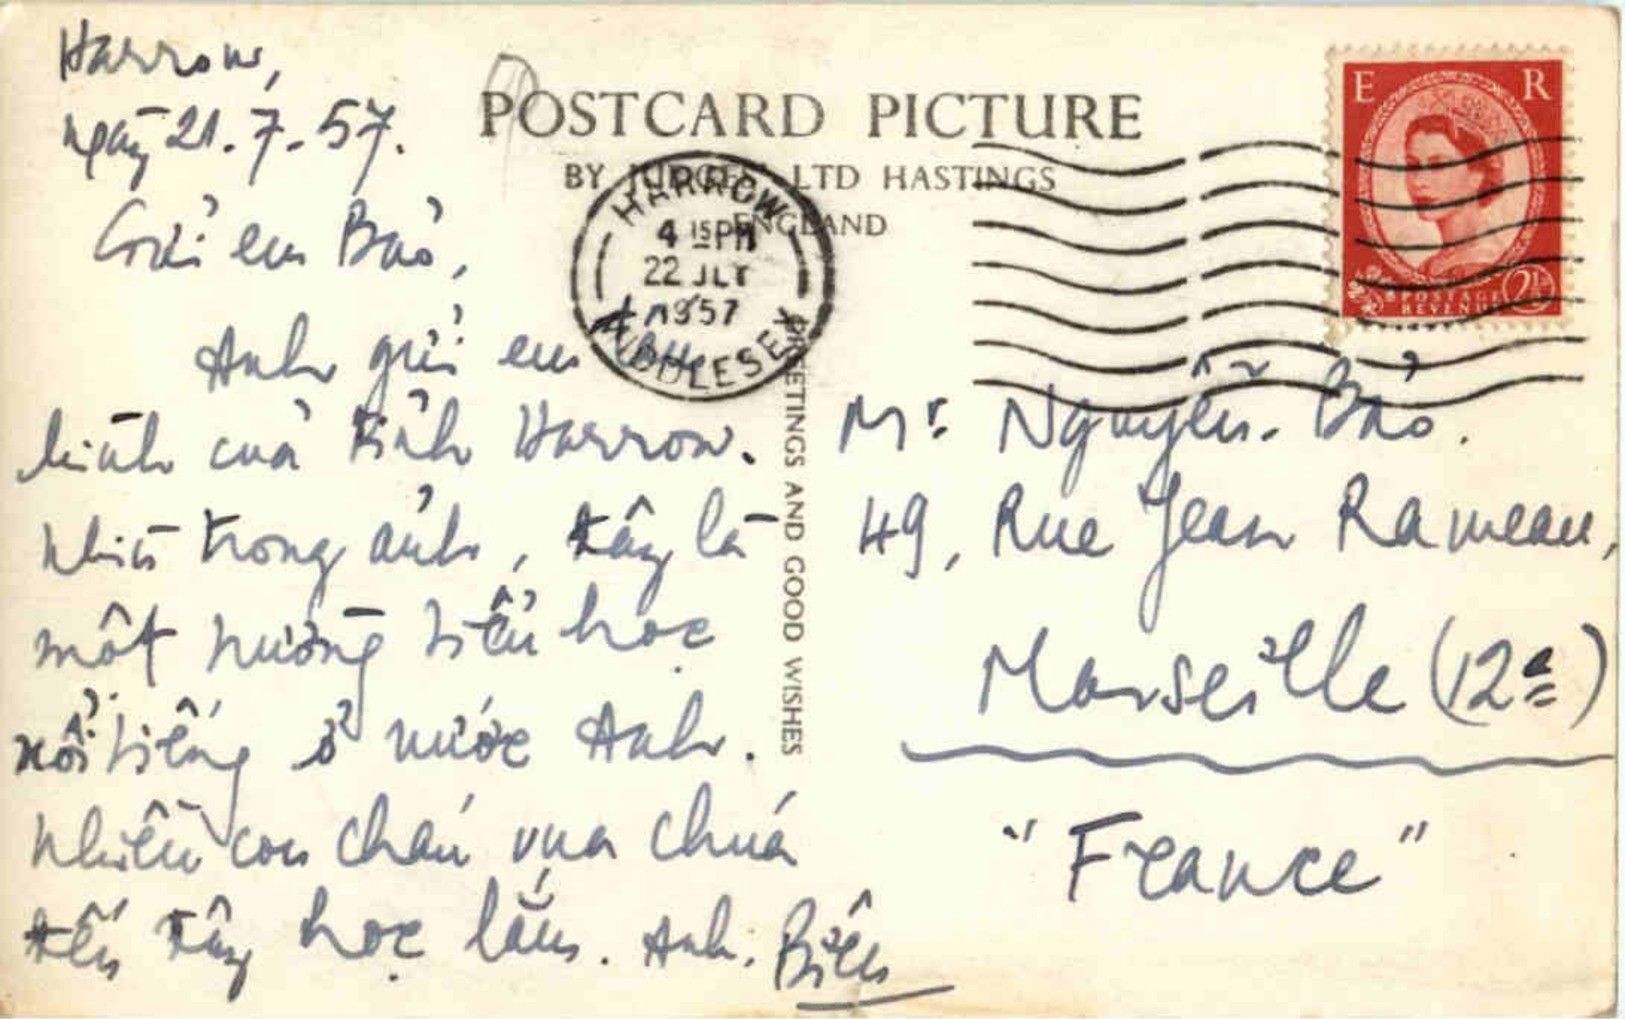 Harrow,
ngày 21.7.57.
Gửi em Bảo,
Anh gửi em
hình của tỉnh Harrow.
Nhìn trong ảnh, đây là
một trường tiểu học
nổi tiếng ở nước Anh.
Nhiều con cháu vua chúa
đến đây học lắm. Anh. Biên
POSTCARD PICTURE
BY JUDGES LTD HASTINGS
ENGLAND
HARROW
4 15 PM
22 JLY
1957
MIDDLESEX
GREETINGS AND GOOD WISHES
E R
POSTAGE
REVENUE
2½
Mr. Nguyễn-Bảo.
49, Rue Jean Rameau,
Marseille (12e)
"France"